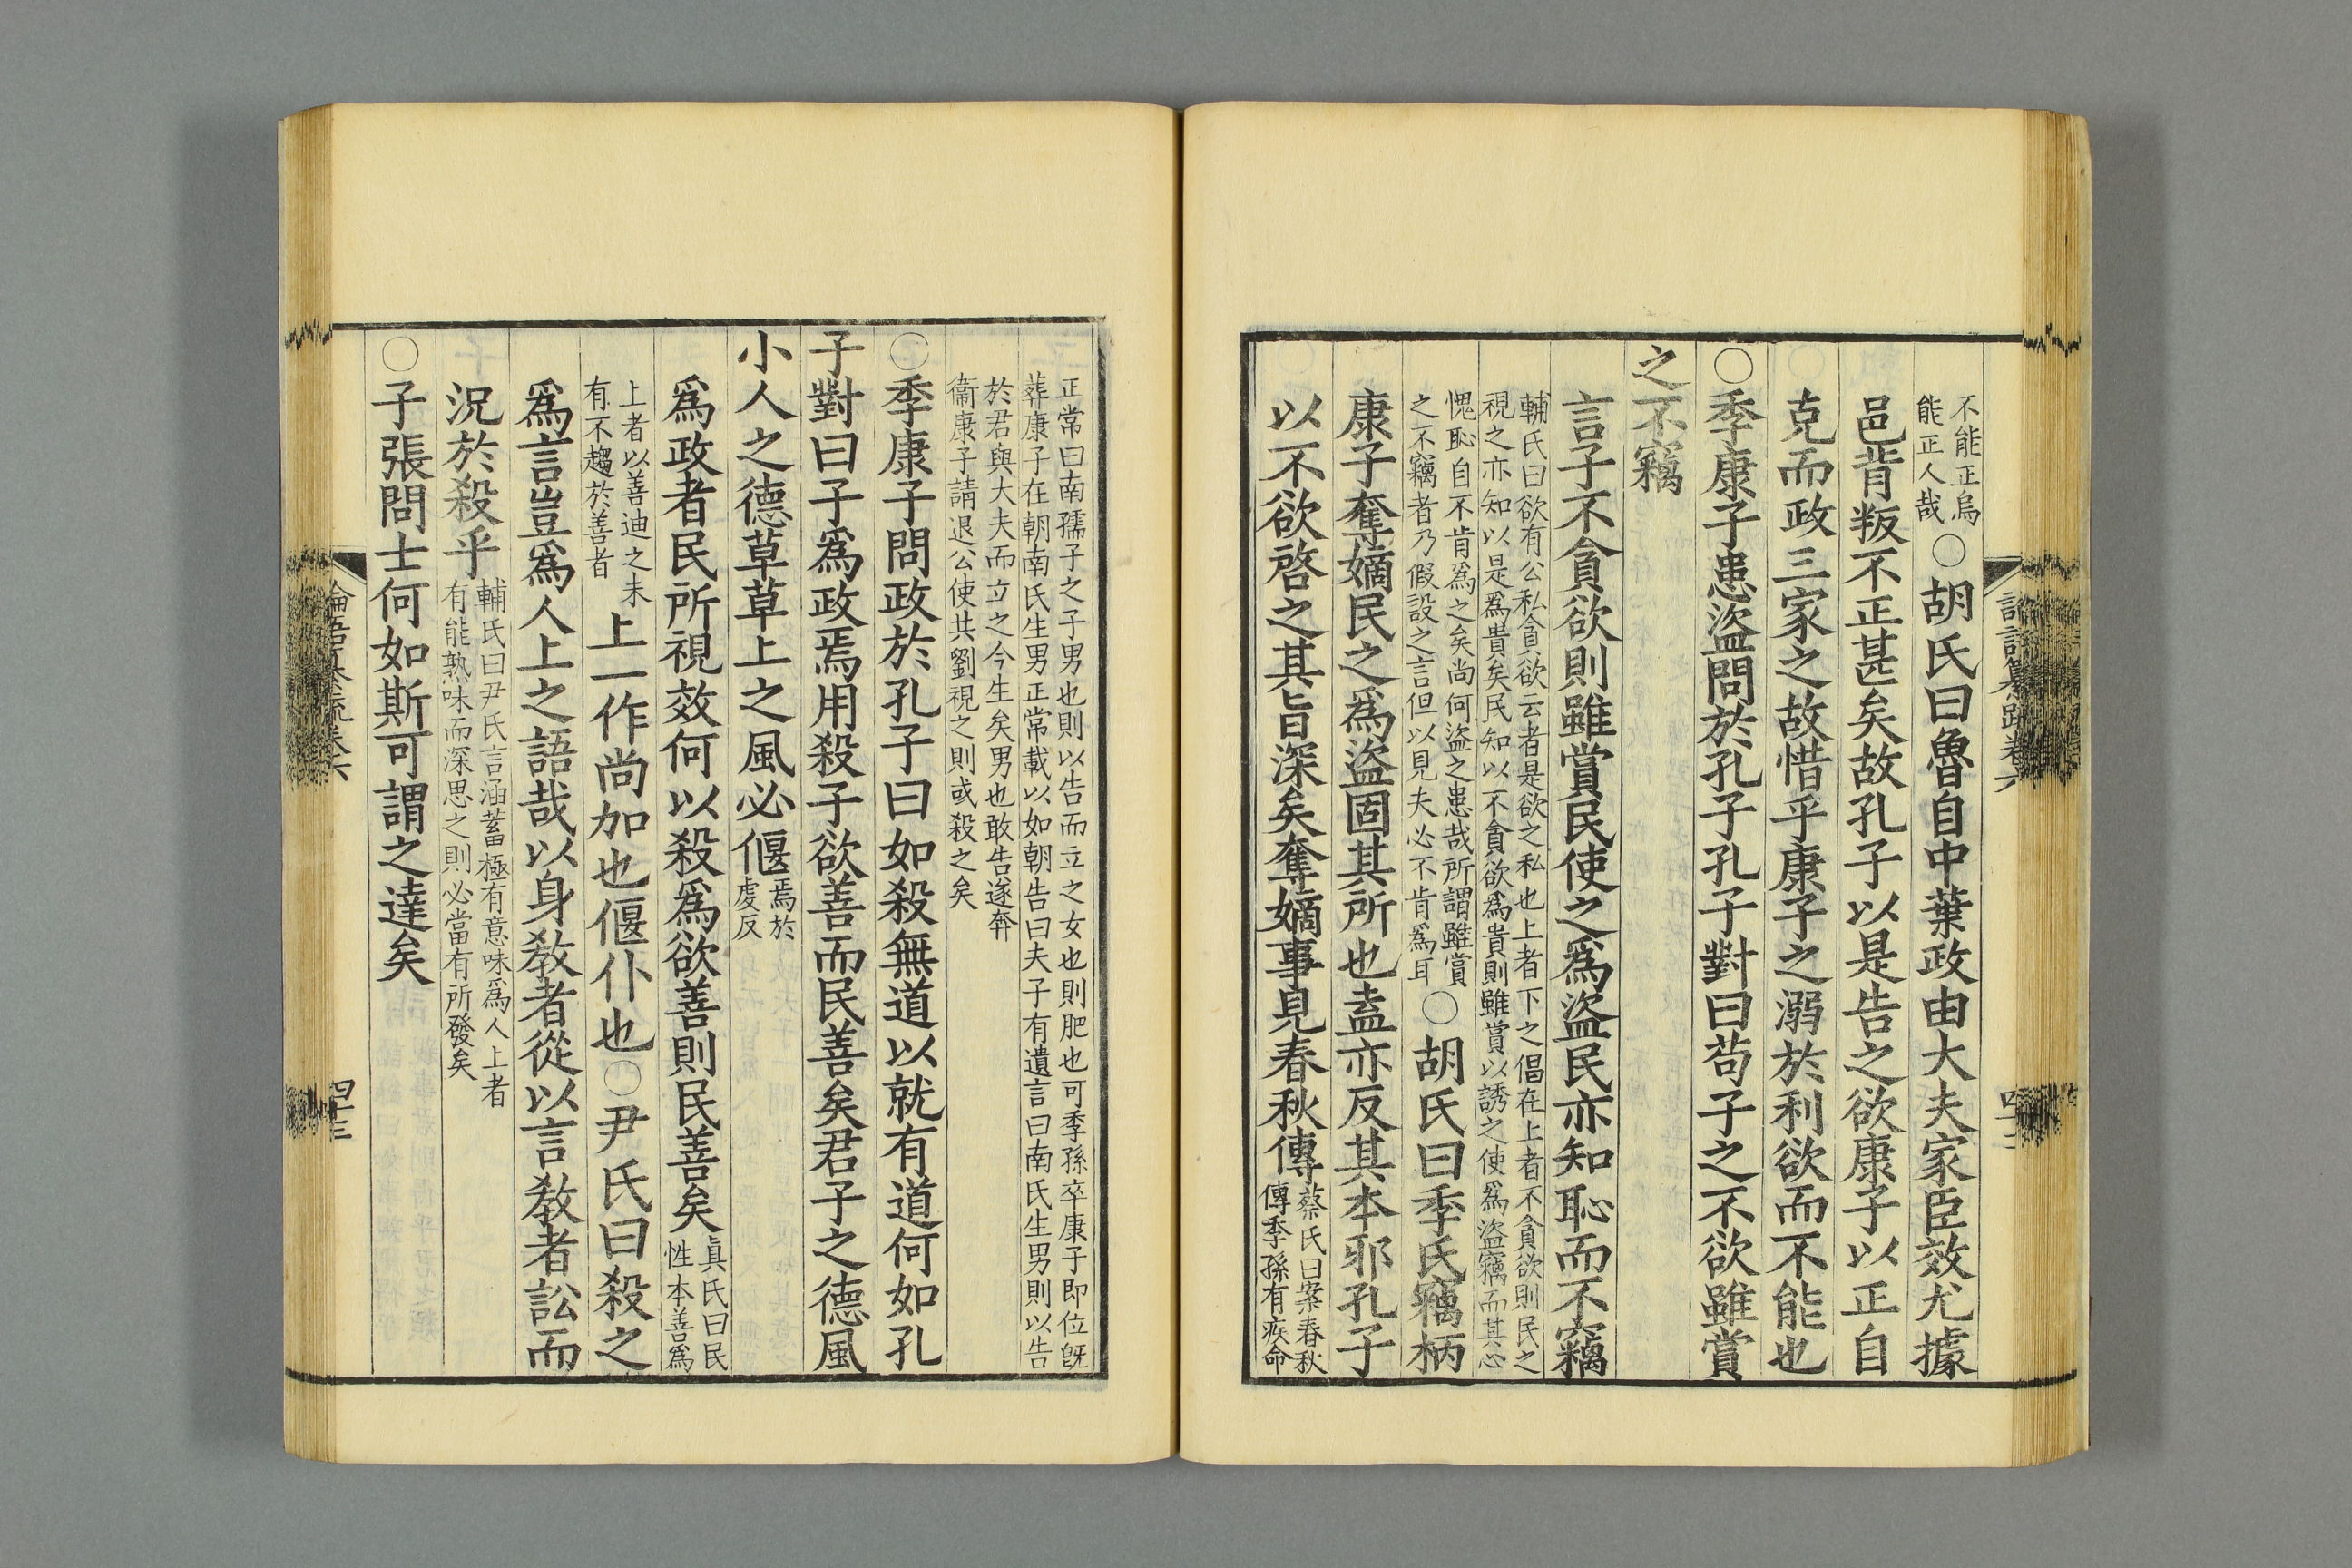 不能正烏
能正人哉○胡氏曰魯自中葉政由大夫家臣效尤據
邑背叛不正甚矣故孔子以是告之欲康子以正自
克而政三家之故惜乎康子之溺於利欲而不能也
○季康子患盜問於孔子孔子對曰苟子之不欲雖賞
之不竊
言子不貪欲則雖賞民使之爲盜民亦知恥而不竊
輔氏曰欲有公私貪欲云者是欲之私也上者下之倡在上者不貪欲則民之
視之亦知以是爲貴矣民知以不貪欲爲貴則雖賞以誘之使爲盜竊而其心
愧恥自不肯爲之矣尚何盜之患哉所謂雖賞
之不竊者乃假設之言但以見夫必不肯爲耳○胡氏曰季氏竊柄
康子奪嫡民之爲盜固其所也盍亦反其本邪孔子
以不欲啓之其旨深矣奪嫡事見春秋傳蔡氏曰案春秋
傳季孫有疾命
正常曰南孺子之子男也則以告而立之女也則肥也可季孫卒康子即位旣
葬康子在朝南氏生男正常載以如朝告曰夫子有遺言曰南氏生男則以告
於君與大夫而立之今生矣男也敢告遂奔
衞康子請退公使共劉視之則或殺之矣
○季康子問政於孔子曰如殺無道以就有道何如孔
子對曰子爲政焉用殺子欲善而民善矣君子之德風
小人之德草草上之風必偃焉於
虔反
爲政者民所視效何以殺爲欲善則民善矣眞氏曰民
性本善爲
上者以善迪之未
有不趨於善者上一作尚加也偃仆也○尹氏曰殺之
爲言豈爲人上之語哉以身敎者從以言敎者訟而
況於殺乎輔氏曰尹氏言涵蓄極有意味爲人上者
有能熟味而深思之則必當有所發矣
○子張問士何如斯可謂之達矣
四十三